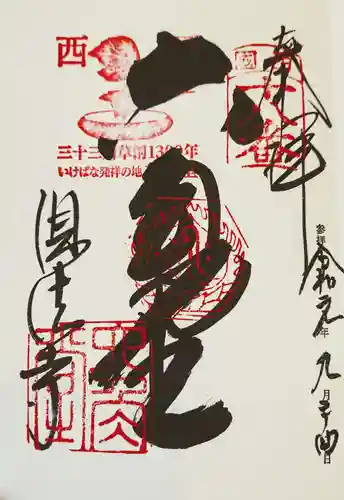 奉拝
参拝 令和元年九月二十四日
六角堂
西
三十三所草創1300年
いけばな発祥の地
頂法寺